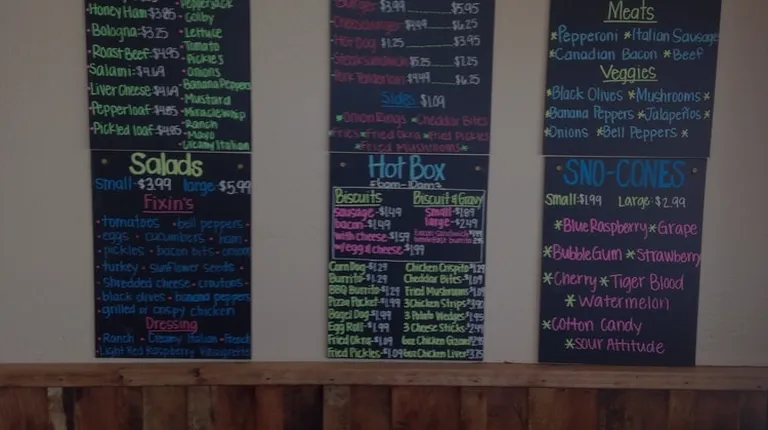 Honey Ham $3.85
Bologna $3.25
Roast Beef $4.95
Salami $4.69
Liver Cheese $4.69
Pepperloaf $4.85
Pickled loaf $4.85
Pepperjack
Colby
Lettuce
Tomato
Pickles
Onions
Banana Peppers
Mustard
Miracle whip
Ranch
Mayo
Creamy Italian
Burger $3.99 $5.95
Cheeseburger $4.49 $6.25
Hot Dog $1.25 $3.95
Steak Sandwich $5.25 $7.25
Pork Tenderloin $4.49 $6.25
Sides $1.09
Onion Rings * Cheddar Bites
Fries * Fried Okra * Fried Pickles
* Fried Mushrooms *
Meats
* Pepperoni * Italian Sausage
* Canadian Bacon * Beef
Veggies
* Black Olives * Mushrooms *
* Banana Peppers * Jalapeños *
* Onions * Bell Peppers *
Salads
Small- $3.99 large- $5.99
Fixin's
• tomatoes • bell peppers •
eggs • cucumbers • ham •
pickles • bacon bits • onions
turkey • sunflower seeds •
shredded cheese • croutons •
black olives • banana peppers
grilled or crispy chicken
Dressing
• Ranch • Creamy Italian • French
Light Red Raspberry Vinaigrette
Hot Box
Biscuits
sausage- $1.49
bacon- $1.49
with cheese- $1.59
egg & cheese- $1.99
Biscuit & Gravy
Small- $1.89
large- $2.49
Corn Dog- $1.29
Burrito- $1.29
BBQ Burrito- $1.29
Pizza Pocket- $1.99
Bagel Dog- $1.99
Egg Roll- $1.99
Fried Okra- $1.09
Fried Pickles- $1.09
Chicken Crispito- $1.29
Cheddar Bites- $1.09
Fried Mushrooms- $1.09
3 Chicken Strips-
3 Potato Wedges-
3 Cheese Sticks-
6oz Chicken Gizzard
6oz Chicken Liver
SNO-CONES
Small- $1.99 Large- $2.99
* Blue Raspberry * Grape
* Bubble Gum * Strawberry
* Cherry * Tiger Blood
* Watermelon
* Cotton Candy
* Sour Attitude